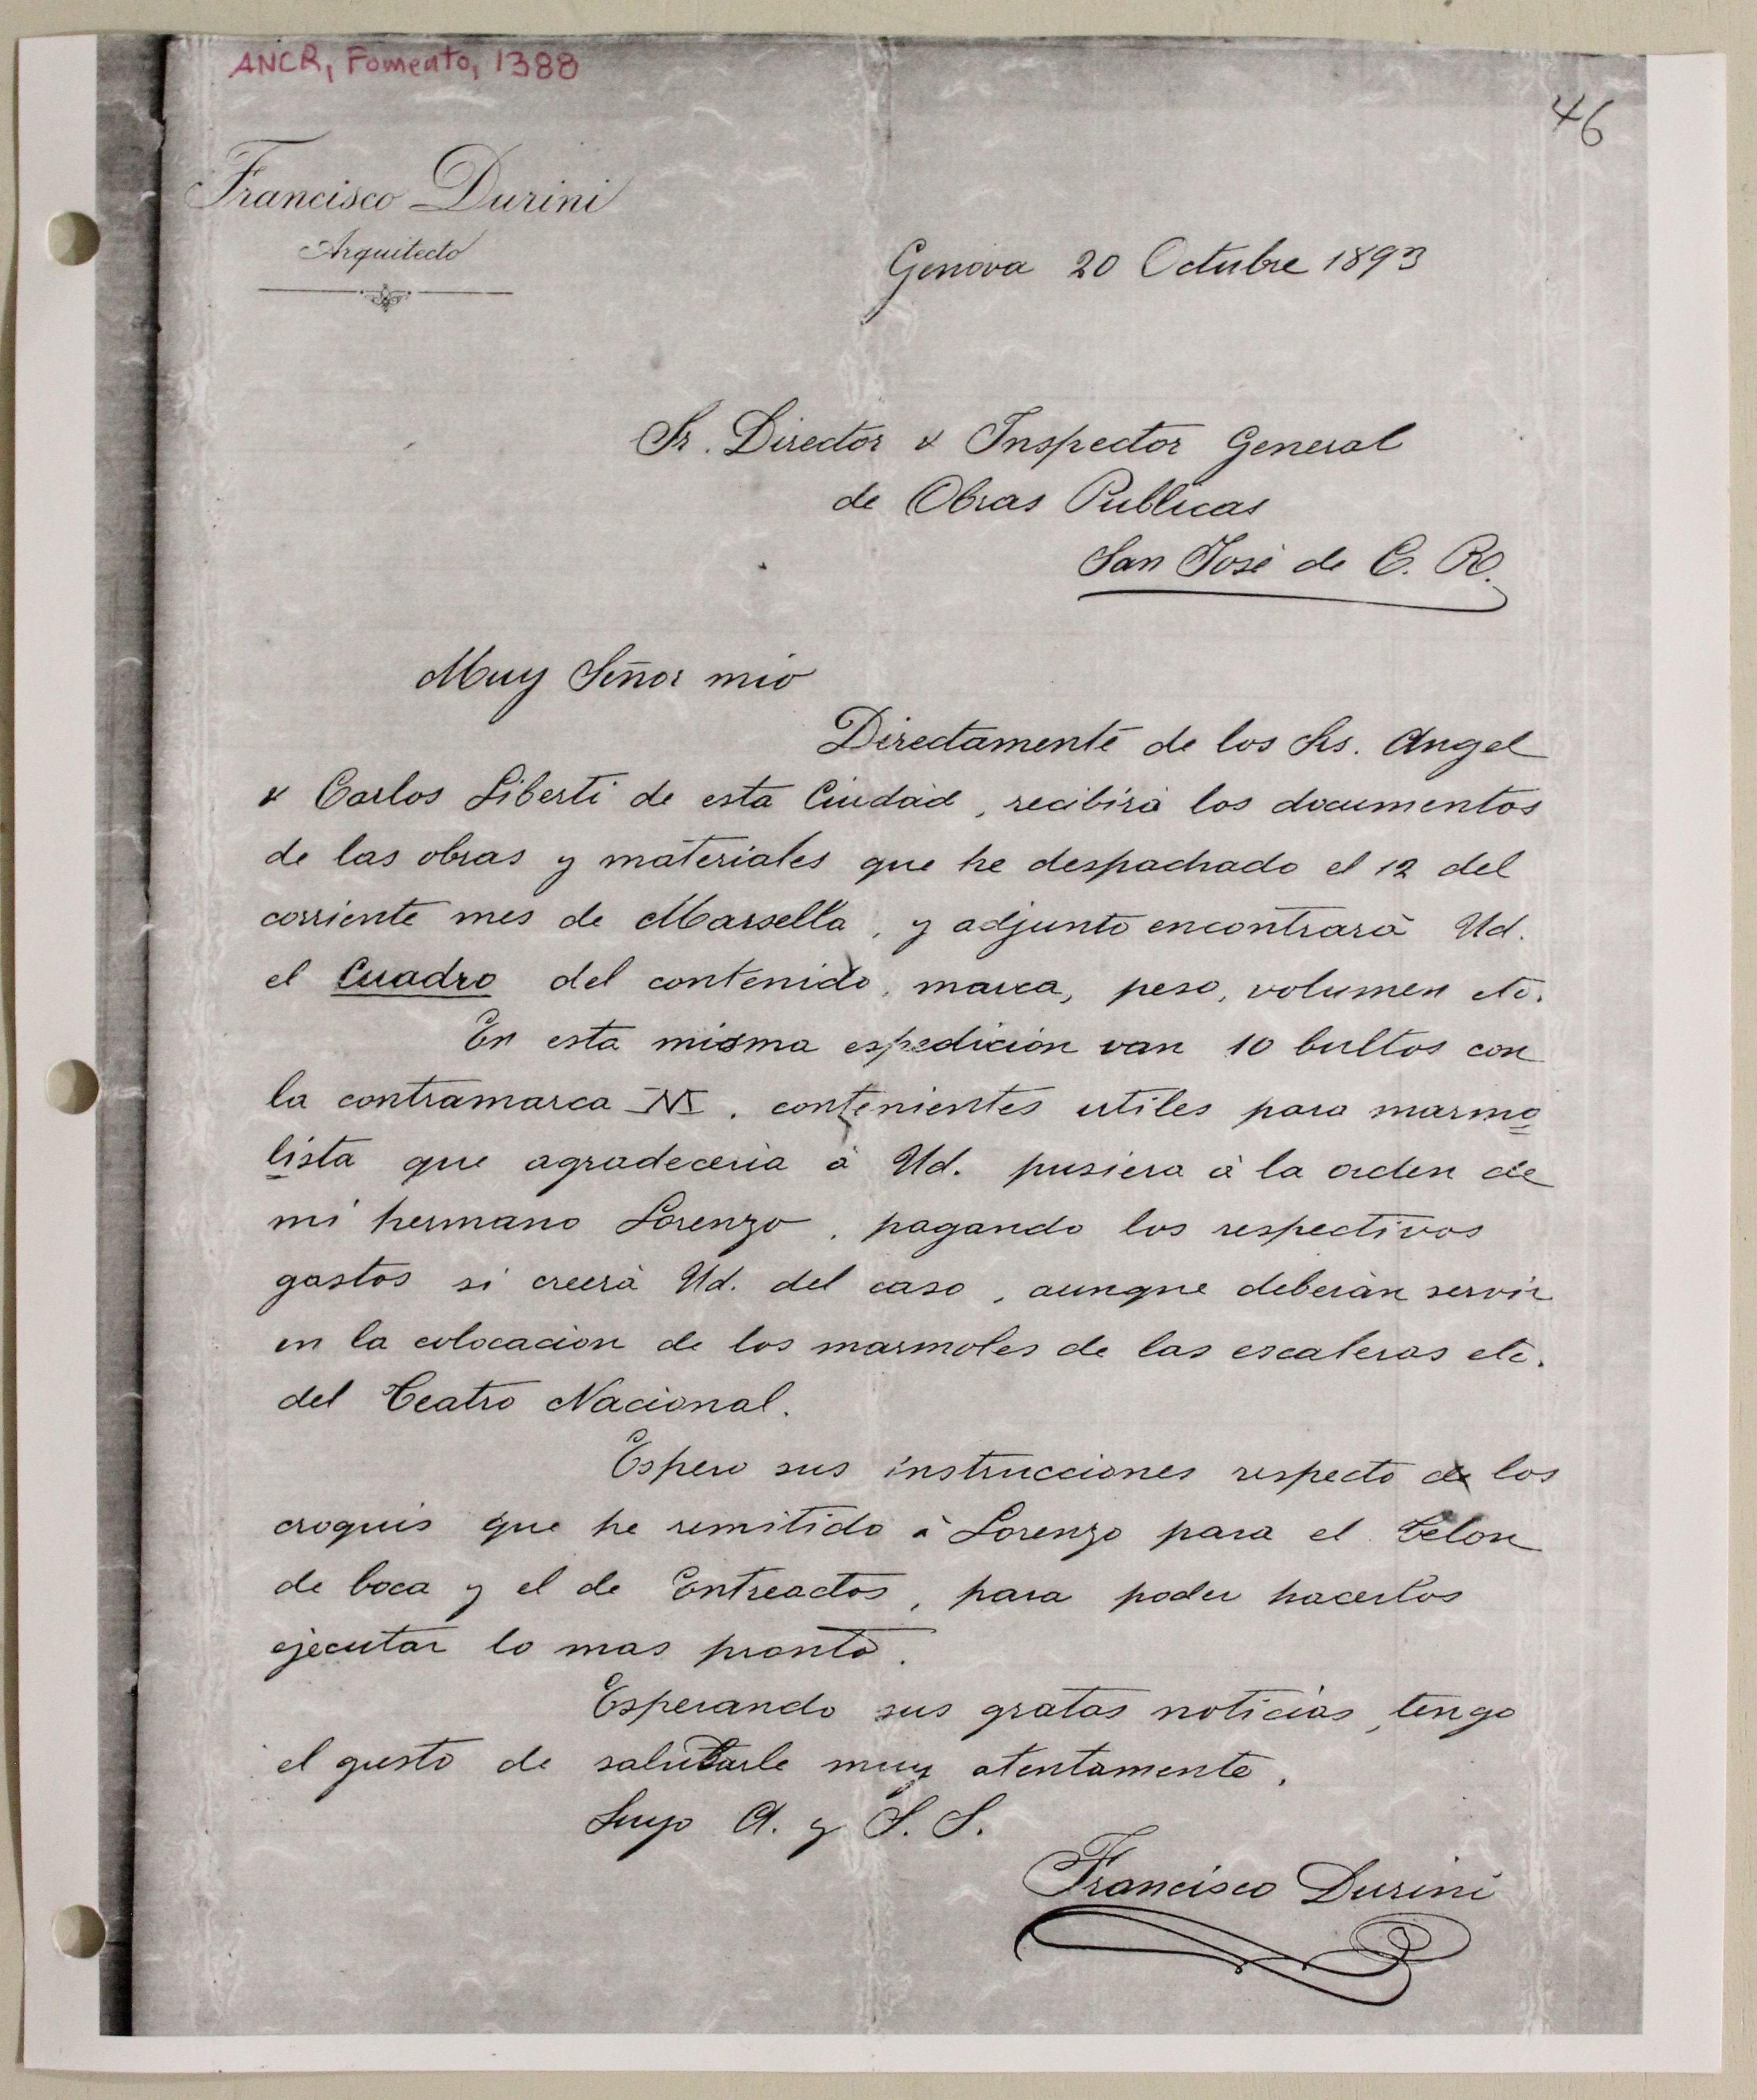 ANCR, Fomento, 1388
46
Francisco Durini
Arquitecto
Genova 20 Octubre 1893
Sr. Director & Inspector General
de Obras Publicas
San José de C. R.
Muy Señor mio
Directamente de los Srs. Angel
& Carlos Liberti de esta Ciudad, recibirà los documentos
de las obras y materiales que he despachado el 12 del
corriente mes de Marsella, y adjunto encontrarà Ud.
el Cuadro del contenido, marca, peso, volumen etc.
En esta misma espedicion van 10 bultos con
la contramarca N. contenientes utiles para marmo
lista que agradeceria à Ud. pusiera à la orden de
mi hermano Lorenzo, pagando los respectivos
gastos si creerà Ud. del caso, aunque deberàn servir
en la colocacion de los marmoles de las escaleras etc.
del Teatro Nacional.
Espero sus instrucciones respecto de los
croquis que he remitido à Lorenzo para el Telon
de boca y el de Entreactos, para poder hacerlos
ejecutar lo mas pronto.
Esperando sus gratas noticias, tengo
el gusto de salutarle muy atentamente.
Suyo A. y S. S.
Francisco Durini